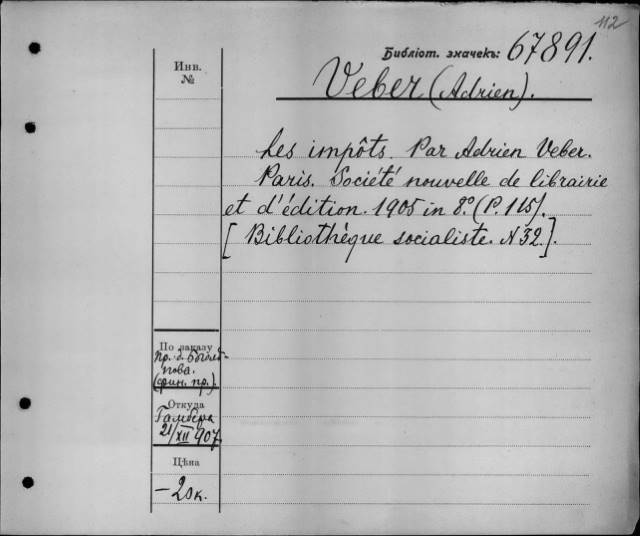 112
Библіот. значекъ: 67891.
Инв.
№
Veber (Adrien).
Les impôts. Par Adrien Veber.
Paris. Société nouvelle de librairie
et d'édition. 1905 in 8º. (P. 115).
[Bibliothèque socialiste. N 32.].
По заказу
пр.-д.
(фин. пр.).
Откуда
21/XII 907.
Цѣна
– 20к.